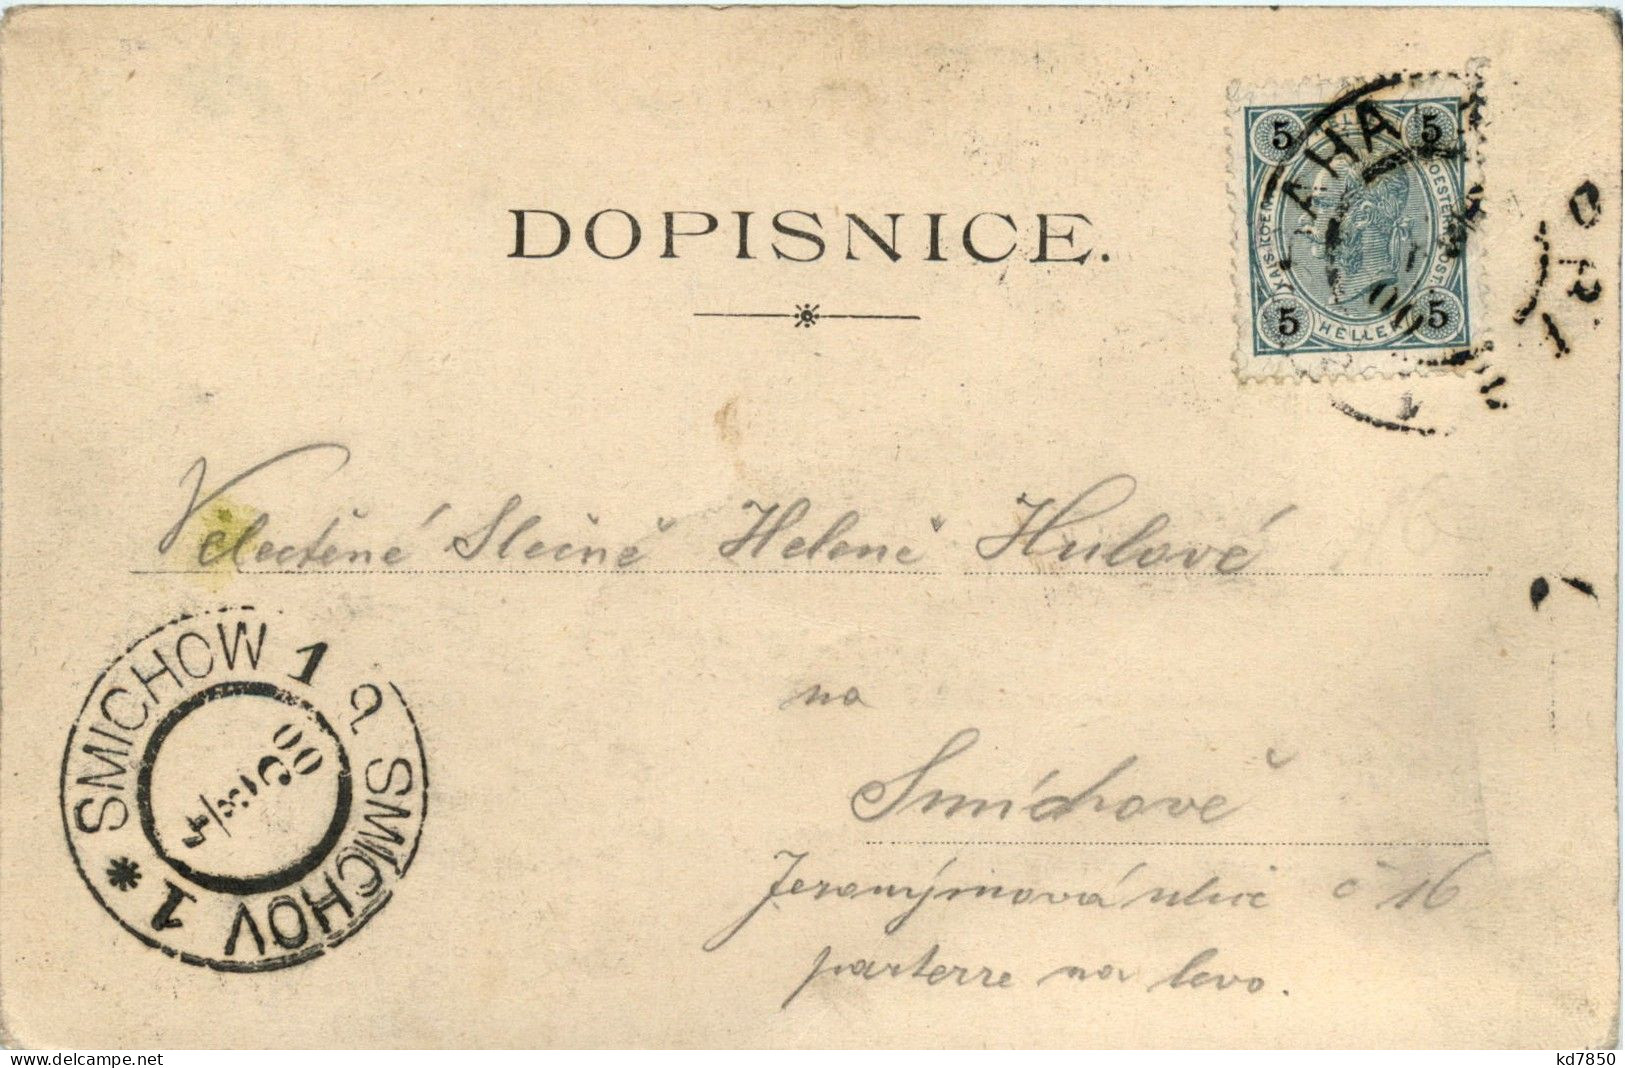 DOPISNICE.
5 5
KAIS. KOEN. OESTERR. POST.
5 5
HELLER
Velectěné Slečně Heleně Hulové
na
Smíchově
Jeronýmová ulice č 16
parterre na levo.
SMICHOW 1
SMICHOV 1
00
www.delcampe.net
kd7850